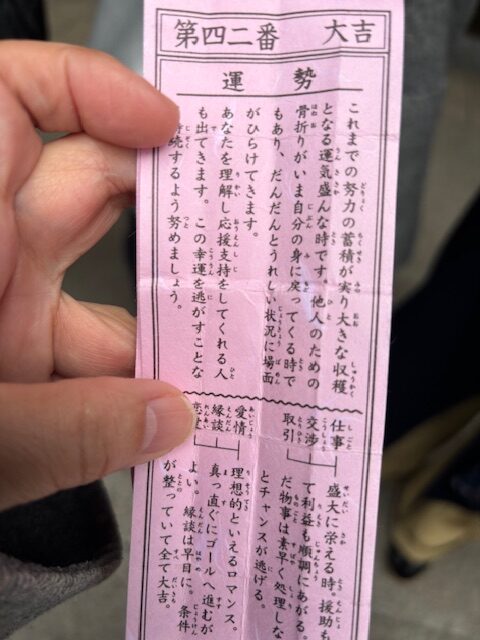 第四二番 大吉
運勢
これまでの努力の蓄積が実り大きな収穫
となる運気盛んな時です。他人のための
骨折りがいま自分の身に戻ってくる時で
もあり、だんだんとうれしい状況に場面
がひらけてきます。
あなたを理解し応援支持をしてくれる人
も出てきます。この幸運を逃がすことな
続するよう努めましょう。
仕事
交渉
取引
盛大に栄える時。援助も
て利益も順調にあがる。
だ物事は素早く処理しな
とチャンスが逃げる。
愛情
縁談
恋愛
理想的といえるロマンス。
真っ直ぐにゴールへ進むが
よい。縁談は早目に。条件
が整っていて全て大吉。